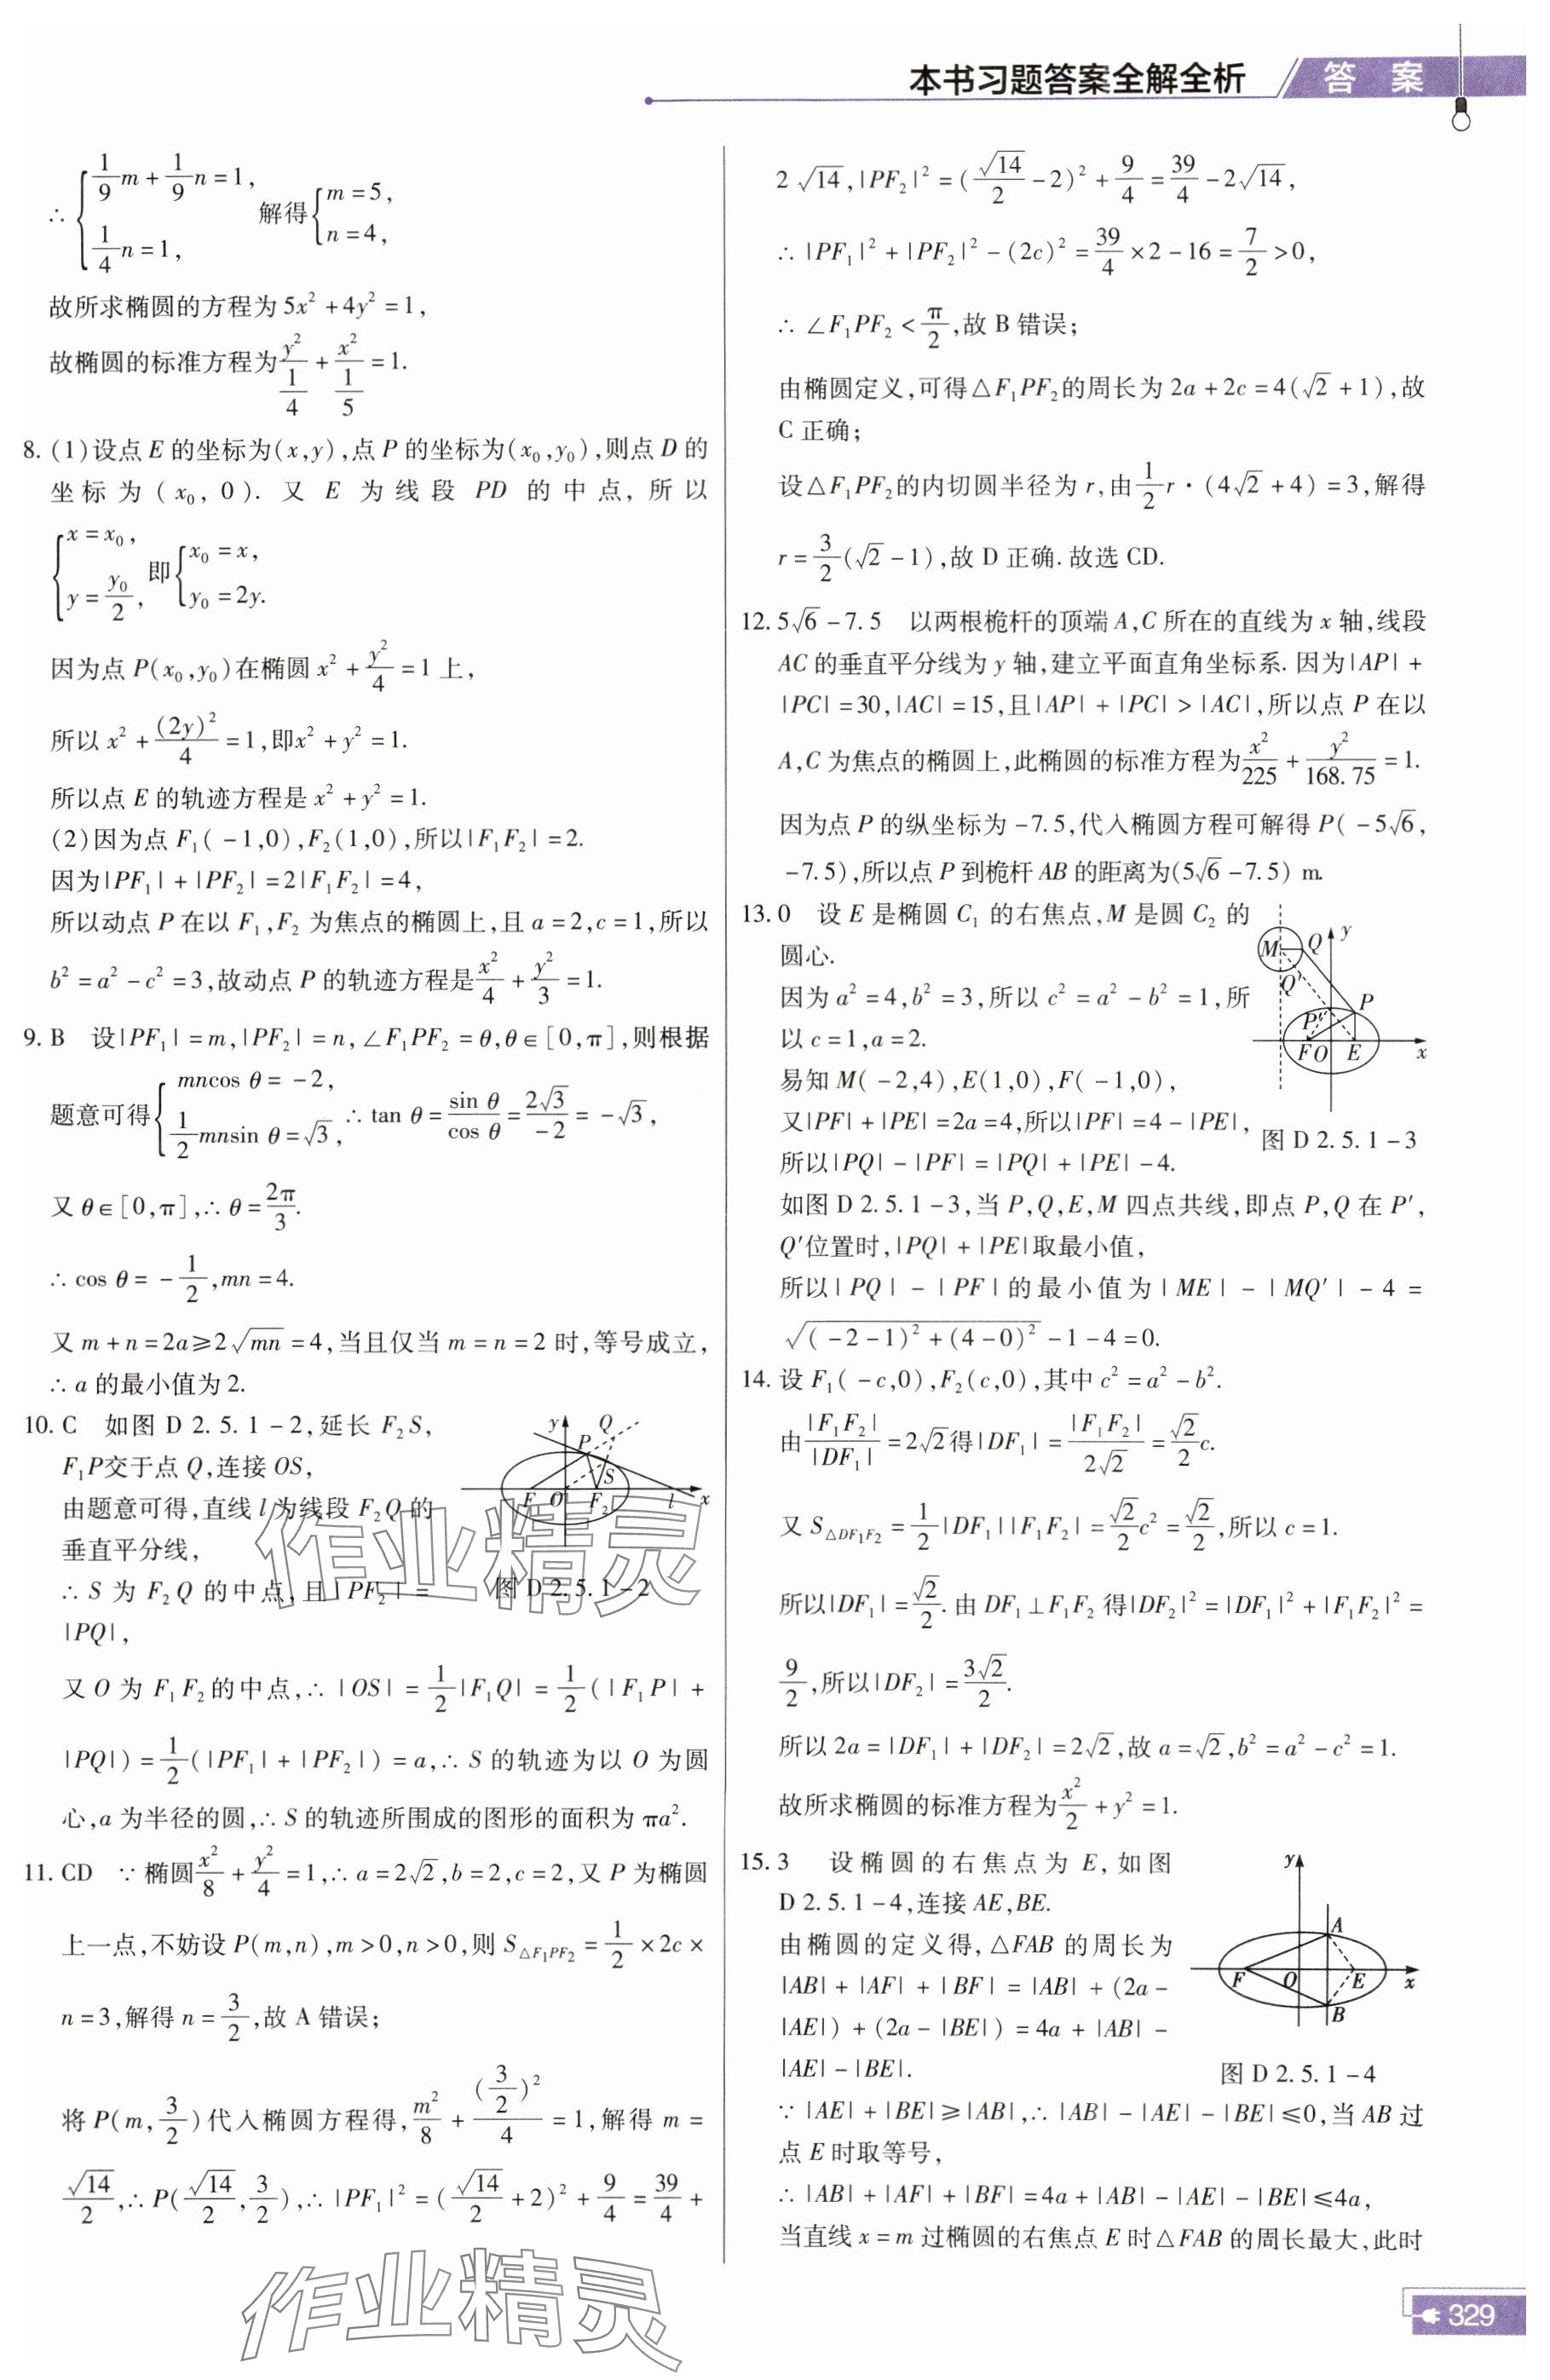 本书习题答案全解全析 答 案
∴ {1/9 m + 1/9 n = 1, 1/4 n = 1, 解得 {m = 5, n = 4,
故所求椭圆的方程为 5x² + 4y² = 1,
故椭圆的标准方程为 y²/(1/4) + x²/(1/5) = 1.
8. (1)设点 E 的坐标为(x,y),点 P 的坐标为(x₀,y₀),则点 D 的
坐标为(x₀, 0). 又 E 为线段 PD 的中点, 所以
{x = x₀, y = y₀/2, 即 {x₀ = x, y₀ = 2y.
因为点 P(x₀,y₀)在椭圆 x² + y²/4 = 1 上,
所以 x² + (2y)²/4 = 1,即x² + y² = 1.
所以点 E 的轨迹方程是 x² + y² = 1.
(2)因为点 F₁(-1,0),F₂(1,0),所以|F₁F₂| = 2.
因为|PF₁| + |PF₂| = 2|F₁F₂| = 4,
所以动点 P 在以 F₁,F₂ 为焦点的椭圆上,且 a = 2,c = 1,所以
b² = a² - c² = 3,故动点 P 的轨迹方程是 x²/4 + y²/3 = 1.
9. B 设|PF₁| = m,|PF₂| = n,∠F₁PF₂ = θ,θ∈[0,π],则根据
题意可得{mncos θ = -2, 1/2 mnsin θ = √3, ∴ tan θ = sin θ/cos θ = 2√3/-2 = -√3,
又 θ∈[0,π],∴ θ = 2π/3.
∴ cos θ = -1/2,mn = 4.
又 m + n = 2a ≥ 2√(mn) = 4,当且仅当 m = n = 2 时,等号成立,
∴ a 的最小值为 2.
10. C 如图 D 2.5.1-2,延长 F₂S,
F₁P交于点 Q,连接 OS,
由题意可得,直线 l 为线段 F₂Q 的
垂直平分线,
∴ S 为 F₂Q 的中点,且|PF₂| =
|PQ|,
y Q P S F O F₂ l x
图 D 2.5.1-2
又 O 为 F₁F₂的中点,∴ |OS| = 1/2|F₁Q| = 1/2(|F₁P| +
|PQ|) = 1/2(|PF₁| + |PF₂|) = a,∴ S 的轨迹为以 O 为圆
心,a 为半径的圆,∴ S 的轨迹所围成的图形的面积为 πa².
11. CD ∵ 椭圆 x²/8 + y²/4 = 1,∴ a = 2√2,b = 2,c = 2,又 P 为椭圆
上一点,不妨设 P(m,n),m > 0,n > 0,则 S△F₁PF₂ = 1/2 × 2c ×
n = 3,解得 n = 3/2,故 A 错误;
将 P(m,3/2)代入椭圆方程得,m²/8 + (3/2)²/4 = 1,解得 m =
√14/2,∴ P(√14/2,3/2),∴ |PF₁|² = (√14/2 + 2)² + 9/4 = 39/4 +
2√14,|PF₂|² = (√14/2 - 2)² + 9/4 = 39/4 - 2√14,
∴ |PF₁|² + |PF₂|² - (2c)² = 39/4 × 2 - 16 = 7/2 > 0,
∴ ∠F₁PF₂ < π/2,故 B 错误;
由椭圆定义,可得△F₁PF₂的周长为 2a + 2c = 4(√2 + 1),故
C 正确;
设△F₁PF₂的内切圆半径为 r,由 1/2 r·(4√2 + 4) = 3,解得
r = 3/2(√2 - 1),故 D 正确. 故选 CD.
12. 5√6 - 7.5 以两根桅杆的顶端 A,C 所在的直线为 x 轴,线段
AC 的垂直平分线为 y 轴,建立平面直角坐标系. 因为|AP| +
|PC| = 30,|AC| = 15,且|AP| + |PC| > |AC|,所以点 P 在以
A,C 为焦点的椭圆上,此椭圆的标准方程为 x²/225 + y²/168.75 = 1.
因为点 P 的纵坐标为 -7.5,代入椭圆方程可解得 P(-5√6,
-7.5),所以点 P 到桅杆 AB 的距离为(5√6 - 7.5) m.
13. 0 设 E 是椭圆 C₁ 的右焦点,M 是圆 C₂ 的
圆心.
因为 a² = 4,b² = 3,所以 c² = a² - b² = 1,所
以 c = 1,a = 2.
易知 M(-2,4),E(1,0),F(-1,0),
又|PF| + |PE| = 2a = 4,所以|PF| = 4 - |PE|,
所以|PQ| - |PF| = |PQ| + |PE| - 4.
M Q y Q′ P P′ F O E x
图 D 2.5.1-3
如图 D 2.5.1-3,当 P,Q,E,M 四点共线,即点 P,Q 在 P′,
Q′位置时,|PQ| + |PE|取最小值,
所以|PQ| - |PF|的最小值为|ME| - |MQ′| - 4 =
√((-2-1)² + (4-0)²) - 1 - 4 = 0.
14. 设 F₁(-c,0),F₂(c,0),其中 c² = a² - b².
由 |F₁F₂|/|DF₁| = 2√2得|DF₁| = |F₁F₂|/2√2 = √2/2 c.
又 S△DF₁F₂ = 1/2|DF₁||F₁F₂| = √2/2 c² = √2/2,所以 c = 1.
所以|DF₁| = √2/2. 由 DF₁⊥F₁F₂ 得|DF₂|² = |DF₁|² + |F₁F₂|² =
9/2,所以|DF₂| = 3√2/2.
所以 2a = |DF₁| + |DF₂| = 2√2,故 a = √2,b² = a² - c² = 1.
故所求椭圆的标准方程为 x²/2 + y² = 1.
15. 3 设椭圆的右焦点为 E,如图
D 2.5.1-4,连接 AE,BE.
由椭圆的定义得,△FAB 的周长为
|AB| + |AF| + |BF| = |AB| + (2a -
|AE|) + (2a - |BE|) = 4a + |AB| -
|AE| - |BE|.
y A F O E x B
图 D 2.5.1-4
∵ |AE| + |BE| ≥ |AB|,∴ |AB| - |AE| - |BE| ≤ 0,当 AB 过
点 E 时取等号,
∴ |AB| + |AF| + |BF| = 4a + |AB| - |AE| - |BE| ≤ 4a,
当直线 x = m 过椭圆的右焦点 E 时△FAB 的周长最大,此时
作业精灵
作业精灵
329